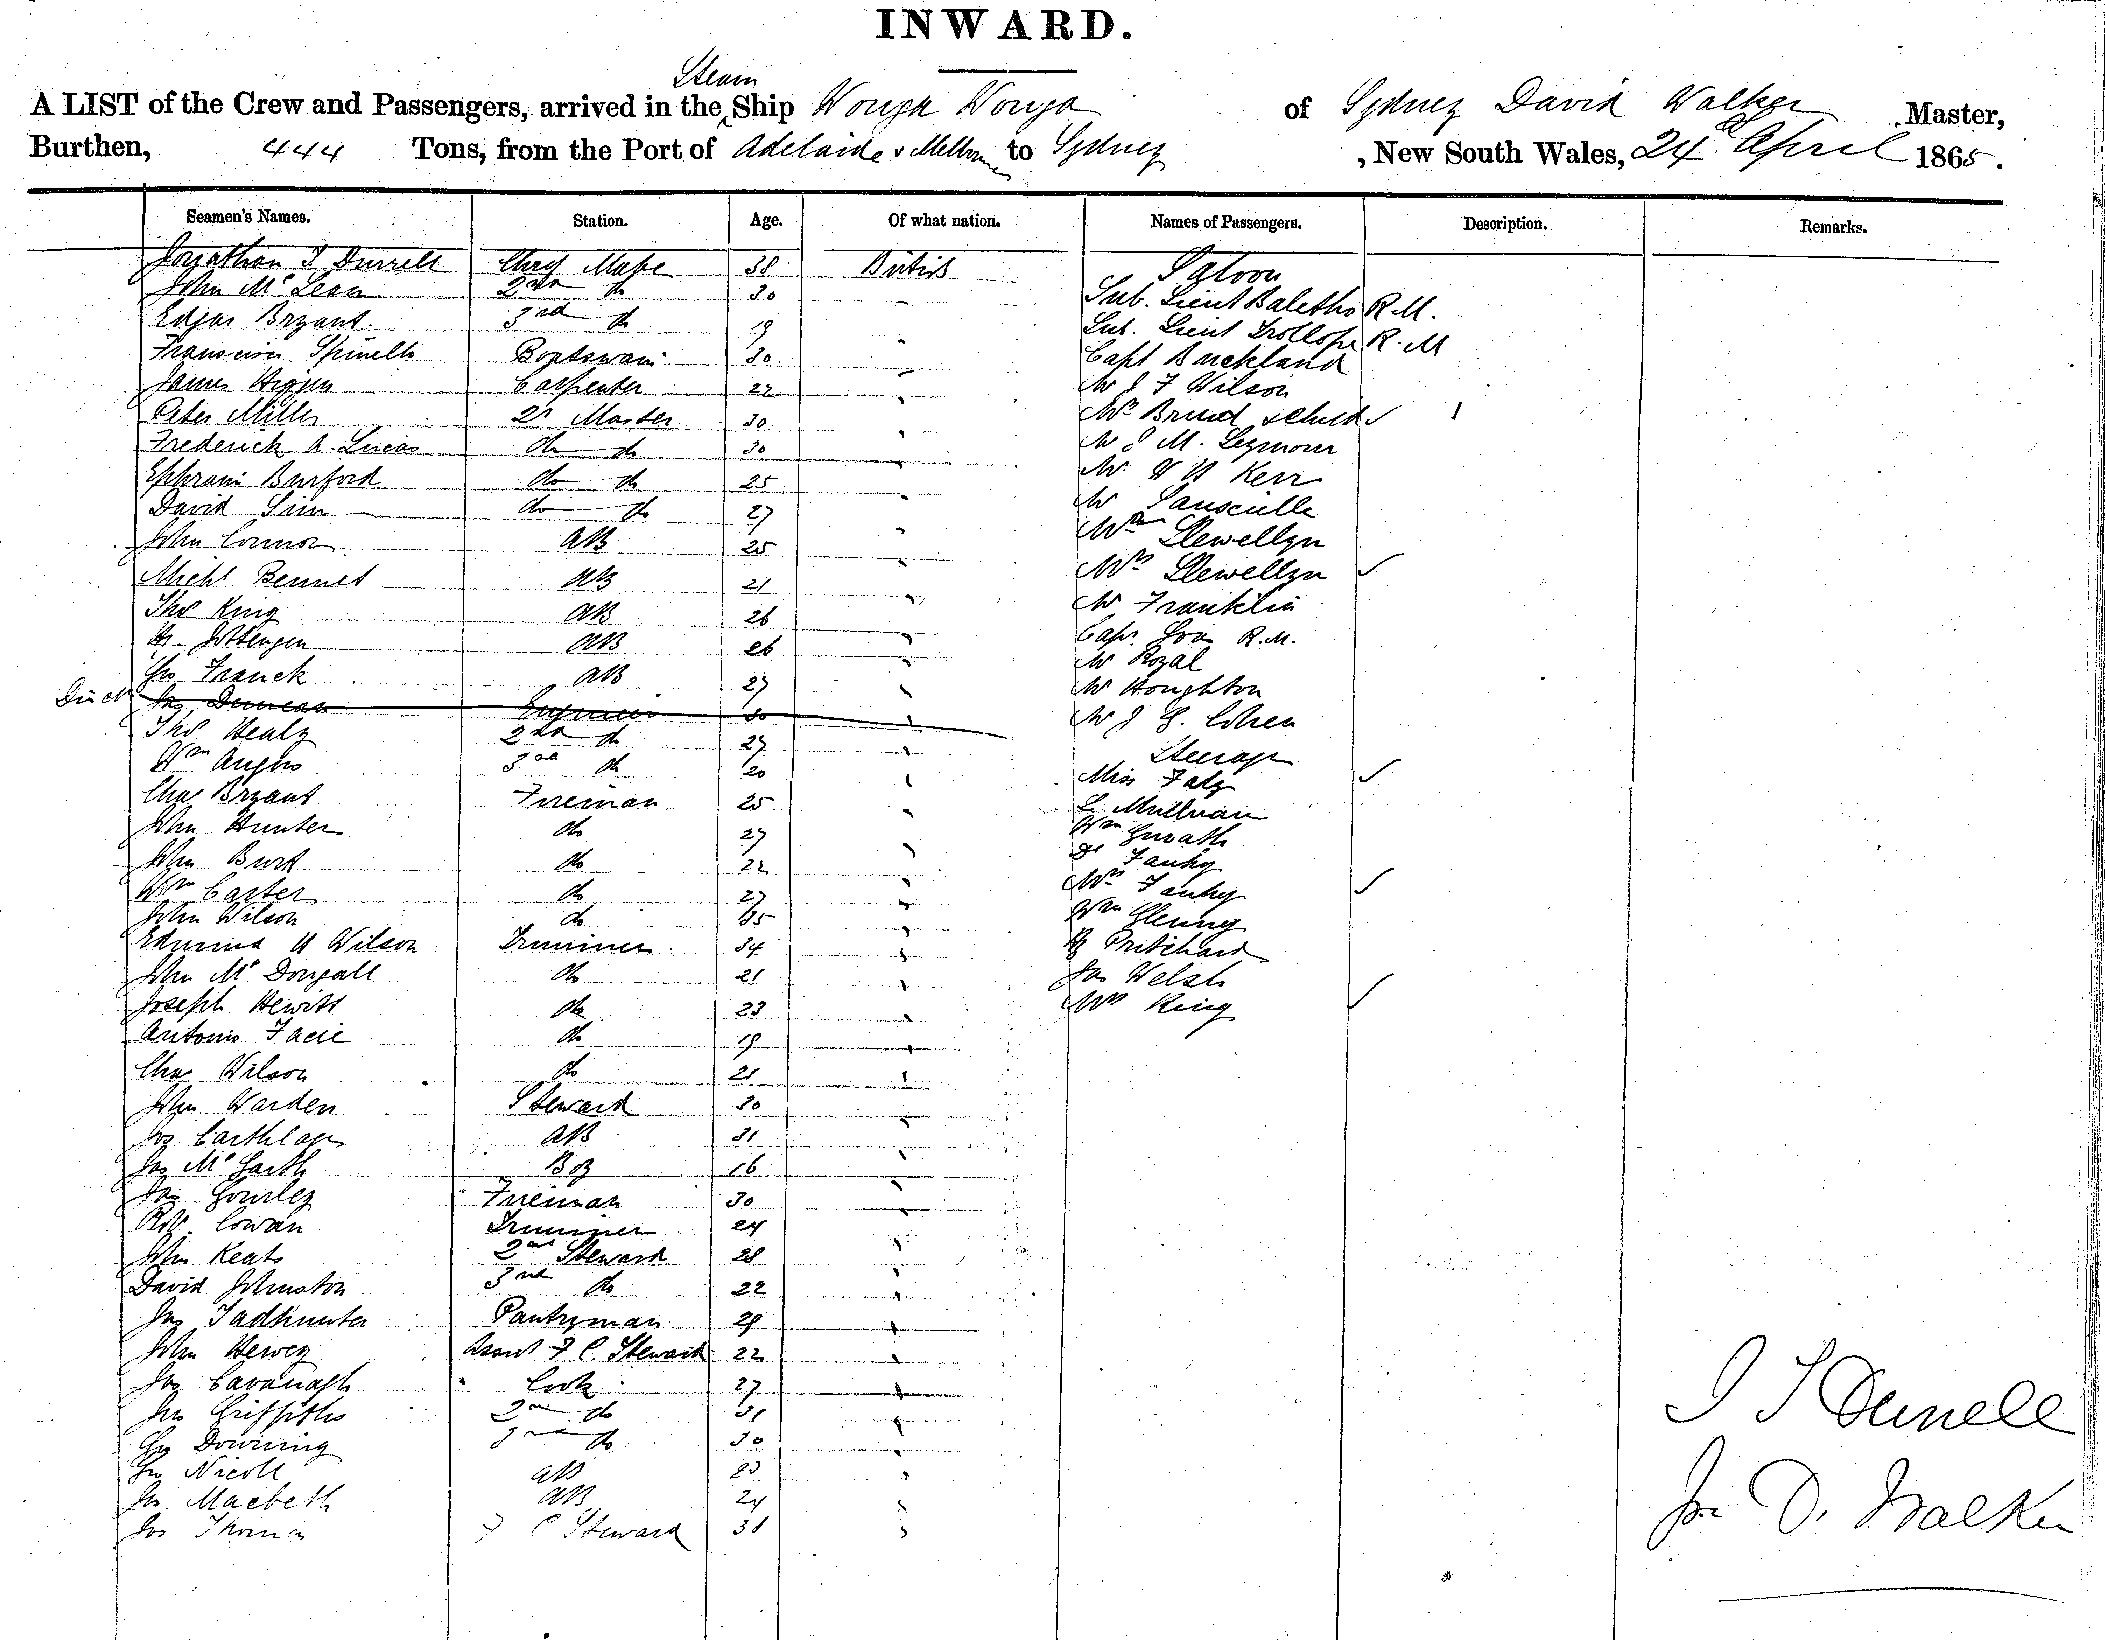 INWARD.
Steam
A LIST of the Crew and Passengers, arrived in the Ship Wonga Wonga of Sydney David Walker Master,
Burthen, 444 Tons, from the Port of Adelaide & Melbourne to Sydney , New South Wales, 24th April 1865.
Seamen's Names. Station. Age. Of what nation. Names of Passengers. Description. Remarks.
Jonathan T Durrell Chief Mate 38 British Saloon
John McLean 2nd do 30 Sub. Lieut R.M.
Edgar Bryant 3rd do 19 Sub. Lieut Trollope R.M
Spinelli Boatswain 30 Capt Buckland
James Carpenter 22 Mr J F Wilson
Peter Miller Qr Master 30 Mrs & child
Frederick A. Lucas do do 30 M. Seymour
Ephraim Burford do do 25 Mr Kerr
David Sim do do 27 Mr
John Connor AB 25 Llewellyn
Michl Bennet AB 21 Mrs Llewellyn
Thos King AB 26 Mr Franklin
AB 26 Capt R.M.
Franck AB 27 Mr Royal
Jas Duncan Engineer 30 Mr Houghton
Thos Healy 2nd do 27 Mr J G. Cohen
Wm Angus 3rd do 20 Steerage
Chas Bryant Fireman 25 Miss
John Hunter do 27
John Burt do 22 Wm
Wm Carter do 27
John Wilson do 35 Mrs
Edmund Wilson Trimmer 34 Wm
John McDougall do 21 Pritchard
Joseph Hewitt do 23 Jas Welsh
Antonio do 19 Mrs King
Chas Wilson do 21
John Warden Steward 30
AB 31
Jas Boy 16
Jas Gourley Fireman 30
Robt Cowan Trimmer 24
John Keats 2nd Steward 28
David Johnston 3rd do 22
Jas Tadhunter Pantryman 29
John Hewey Assist F C. Steward 22
Jas Cavanagh Cook 27
Griffiths 2nd do 31
Geo Downing 3rd do 30
Nicoll AB 23
Macbeth AB 24
Jas Thomas F C Steward 31
J T Durrell
for D. Walker